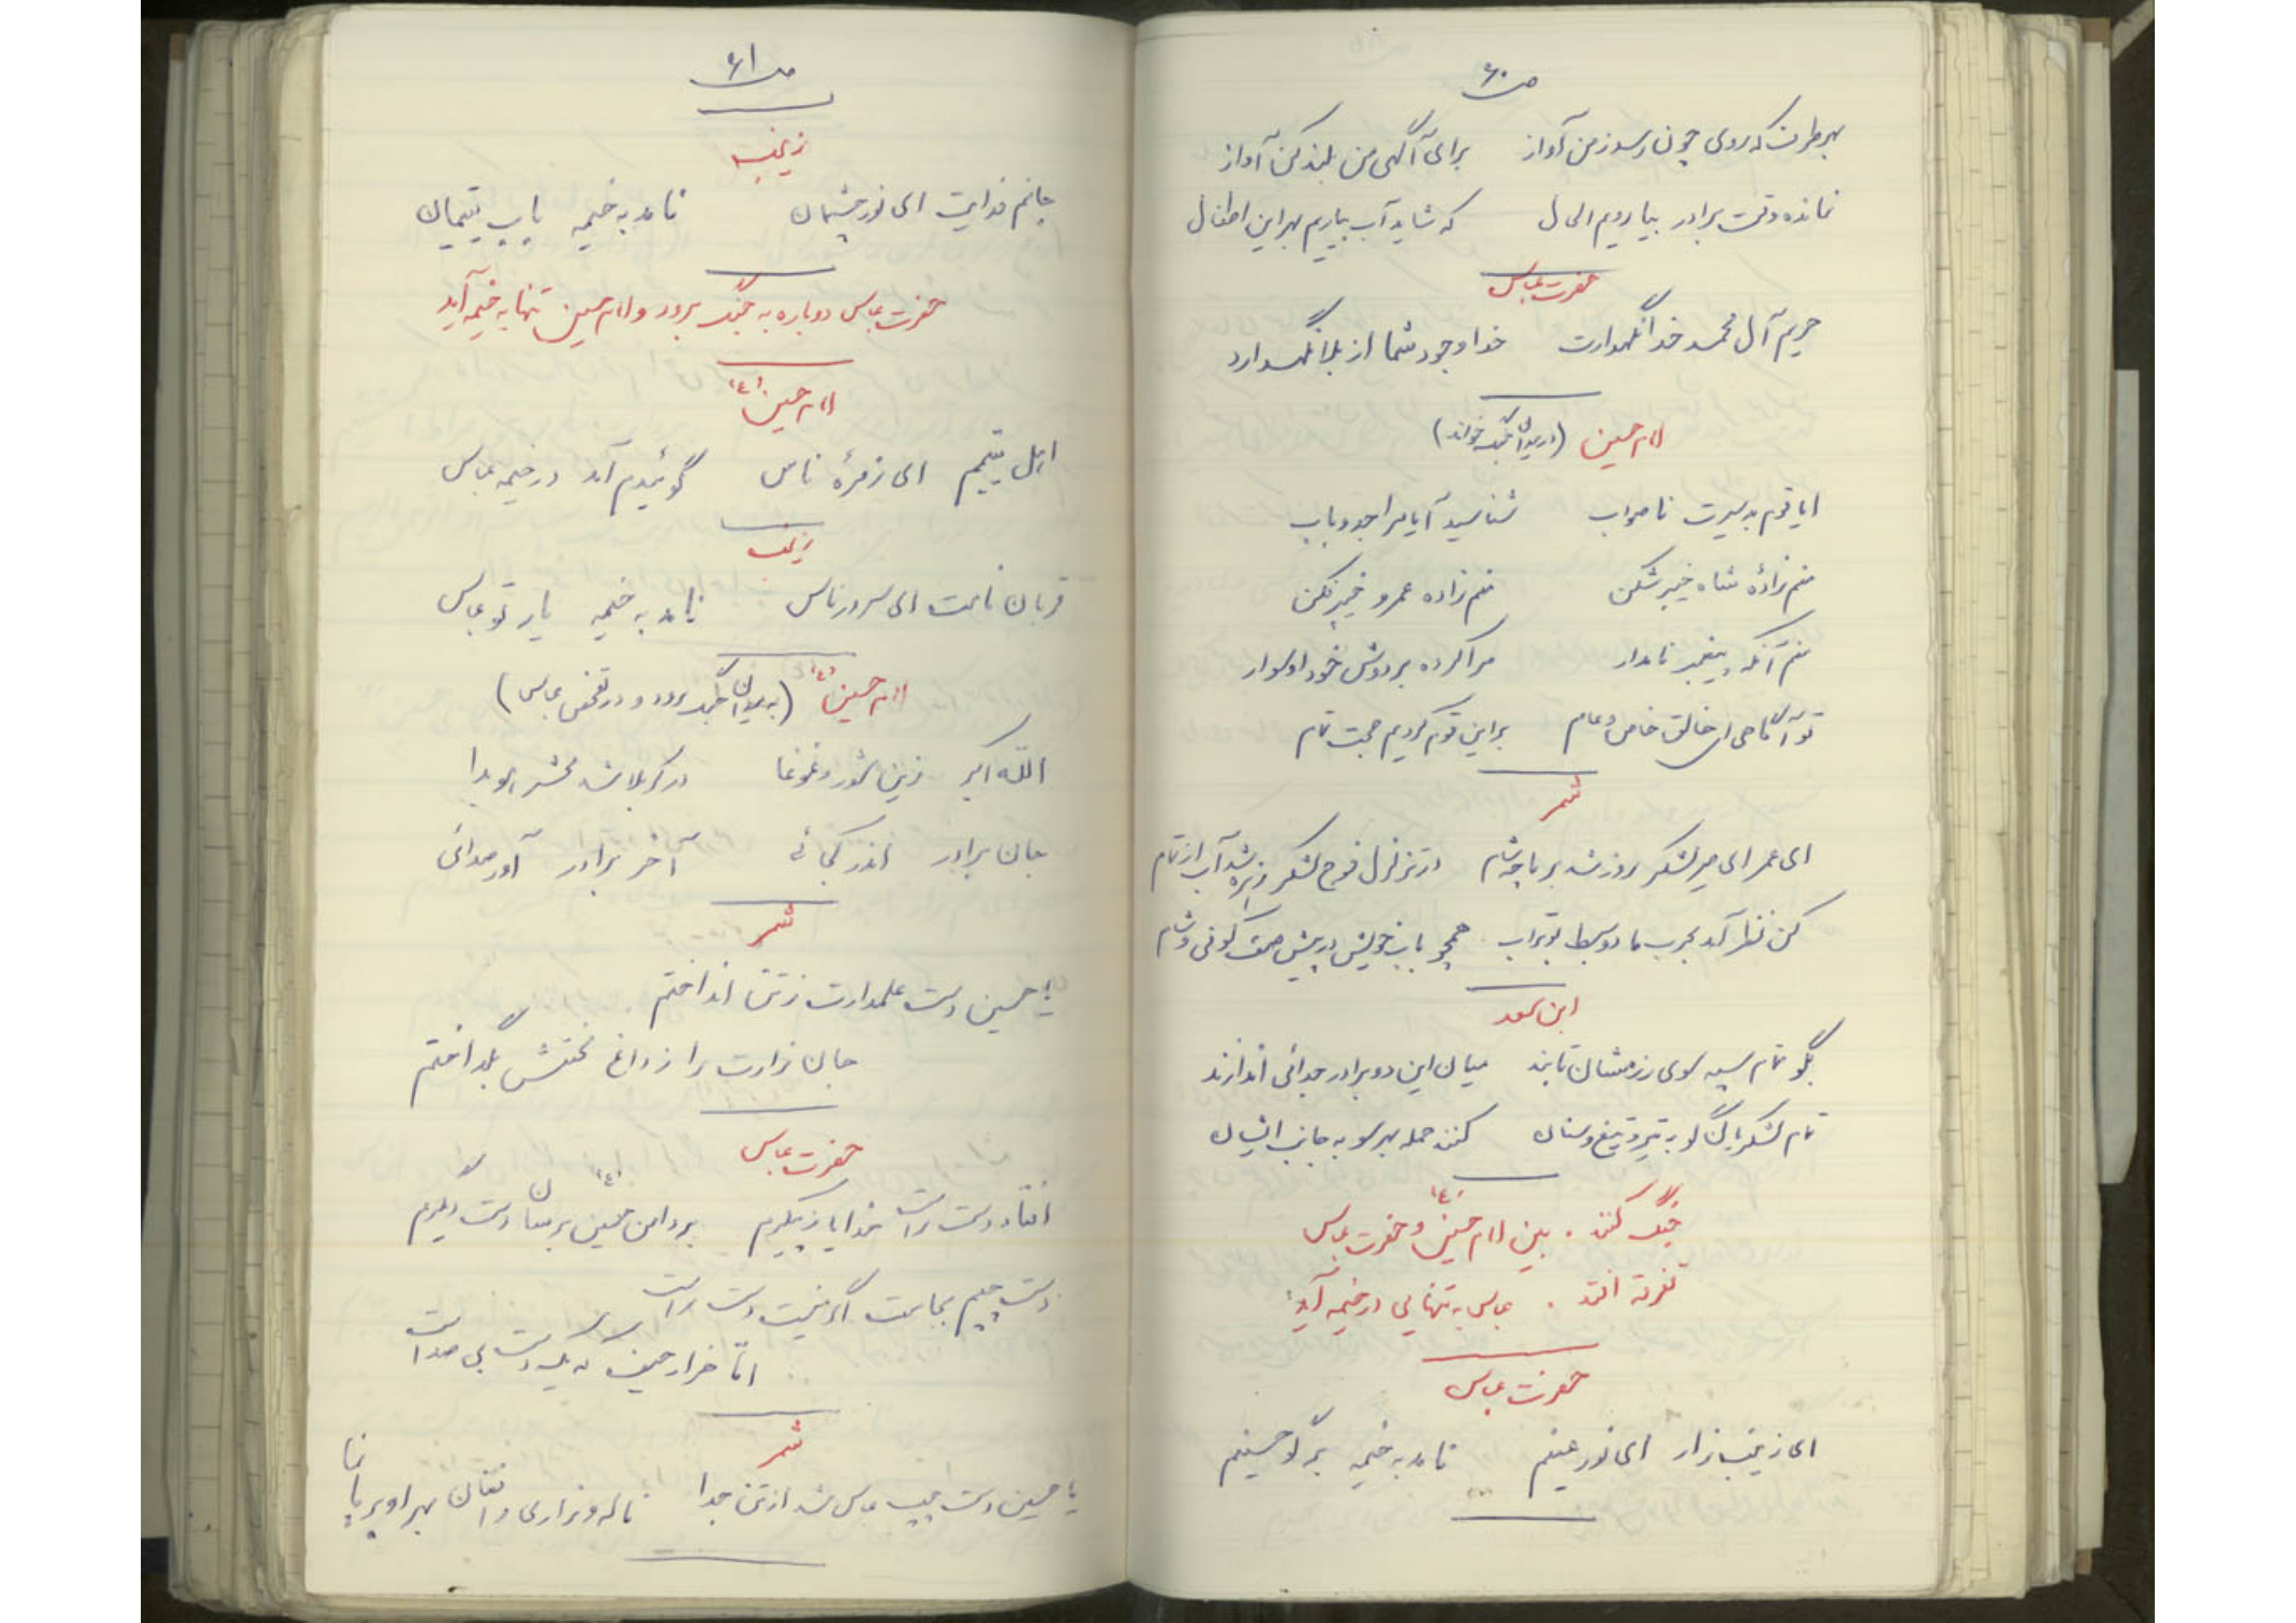 ص ۶۰
بهر طرف که روی چون رسد ز من آواز    برای آگهی من بلند کن آواز
نمانده وقت برادر بیا رویم الحال    که شاید آب بیاریم بهر این اطفال
حضرت عباس
حریم آل محمد خدا نگهدارت    خدا وجود شما از بلا نگهدارد
امام حسین (در میدان جنگ خواند)
ایا قوم بد سیرت ناصواب    شناسید آیا مرا جد و باب
منم زادهٔ شاه خیبر شکن    منم زاده عمرو خیبر فکن
منم آنکه پیغمبر نامدار    مرا کرده بر دوش خود او سوار
تو آگاهی ای خالق خاص و عام    بر این قوم کردیم حجت تمام
شمر
ای عمر ای میر لشکر روز شد بر ما چو شام    در تزلزل فوج لشکر زهره شد آب از تمام
کن نظر آمد بحرب ما دو سبط بوتراب    همچو باب خویش در پیش صف کوفی و شام
ابن سعد
بگو تمام سپه سوی رزمشان تازند    میان این دو برادر جدائی اندازند
تمام لشکریان گو به تیر و تیغ و سنان    کنند حمله بهر سو به جانب ایشان
جنگ کنند . بین امام حسین (ع) و حضرت عباس
تفرقه افتد . عباس به تنهایی در خیمه آید
حضرت عباس
ای زینب زار ای نور عینم    نامد به خیمه برگو حسینم
ص ۶۱
زینب
جانم فدایت ای نور چشمان    نامد به خیمه باب یتیمان
حضرت عباس دوباره به جنگ برود و امام حسین تنها به خیمه آید
امام حسین (ع)
اهل یتیمم ای زمرهٔ ناس    گوئیدم آمد در خیمه عباس
زینب
قربان نامت ای سرور ناس    نامد به خیمه یار تو عباس
امام حسین (ع) (به میدان جنگ برود و در تفحص عباس)
الله اکبر زین شور و غوغا    در کربلا شد محشر هویدا
جان برادر اندر کجائی    آخر برادر آور صدائی
شمر
یا حسین دست علمدارت ز تن انداختم
جان زارت را ز داغ محنتش بگداختم
حضرت عباس
افتاد دست راست خدایا ز پیکرم    بر دامن حسین (ع) برسان دست دیگرم
دست چپم بجاست اگر نیست دست راست
اما هزار حیف که یک دست بی صداست
شمر
یا حسین دست چپ عباس شد از تن جدا    ناله و زاری و افغان بهر او بر پا نما